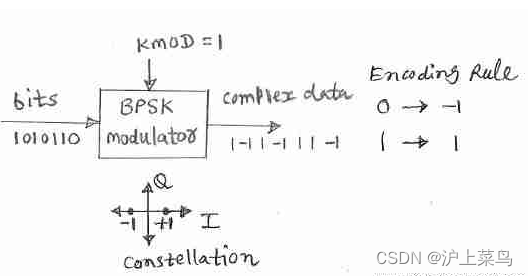 KMOD = 1
bits
1010110
BPSK
modulator
complex data
1 -1 1 -1 1 1 -1
Encoding Rule
0 → -1
1 → 1
Q
-1 +1 I
Constellation
CSDN @沪上菜鸟